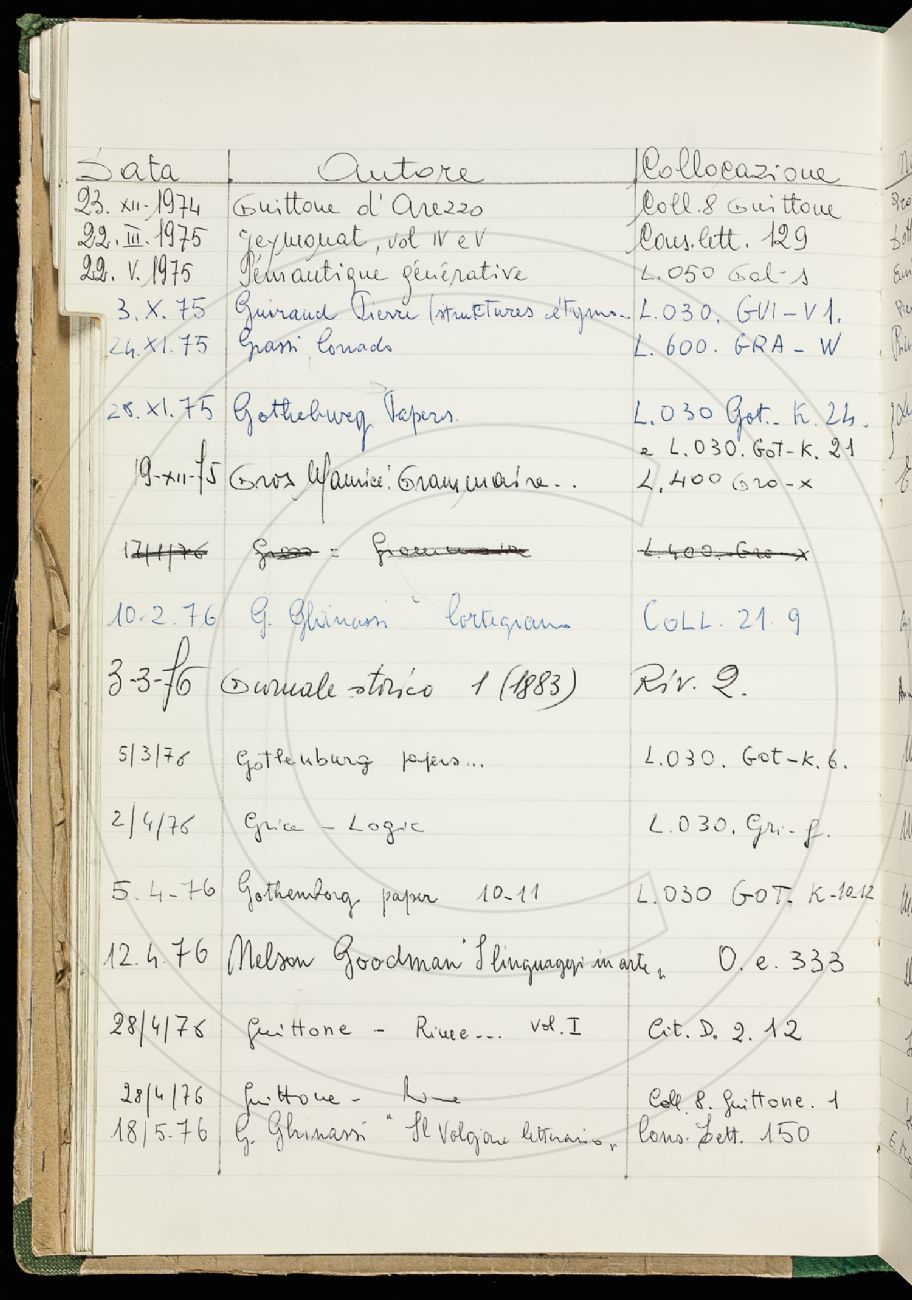 Data Autore Collocazione
23. XII. 1974 Guittone d'Arezzo Coll. 8 Guittone
22. III. 1975 Geymonat, vol IV e V Cons. lett. 129
22. V. 1975 Sémantique générative L.050 Gal-s
3. X. 75 Guiraud Pierre (structures étymo.. L.030. GUI-V1.
24. XI. 75 Grassi Corrado L. 600. GRA - W
28. XI. 75 Gotheburg Papers. L.030 Got.- K. 24.
e L.030. GOT-K. 21
19-XII-75 Gros Maurice: Grammaire... L.400 Gro-x
17/1/76 Gross = Grammaire L.400. Gro-x
10.2.76 G. Ghinassi " Cortegiano COLL. 21. 9
3-3-76 Giornale storico 1 (1883) Riv. 2.
5/3/76 Gothenburg papers... L.030. Got-K.6.
2/4/76 Grice - Logic L.030. Gri-g.
5.4-76 Gothemborg paper 10-11 L.030 GOT- K-10-12
12.4.76 Nelson Goodman "I linguaggi in arte" O. e. 333
28/4/76 Guittone - Rime... vol. I Cit. D. 2. 12
28/4/76 Guittone - Rime Coll. 8. Guittone. 1
18/5.76 G. Ghinassi "Il Volgare letterario" Cons. Lett. 150